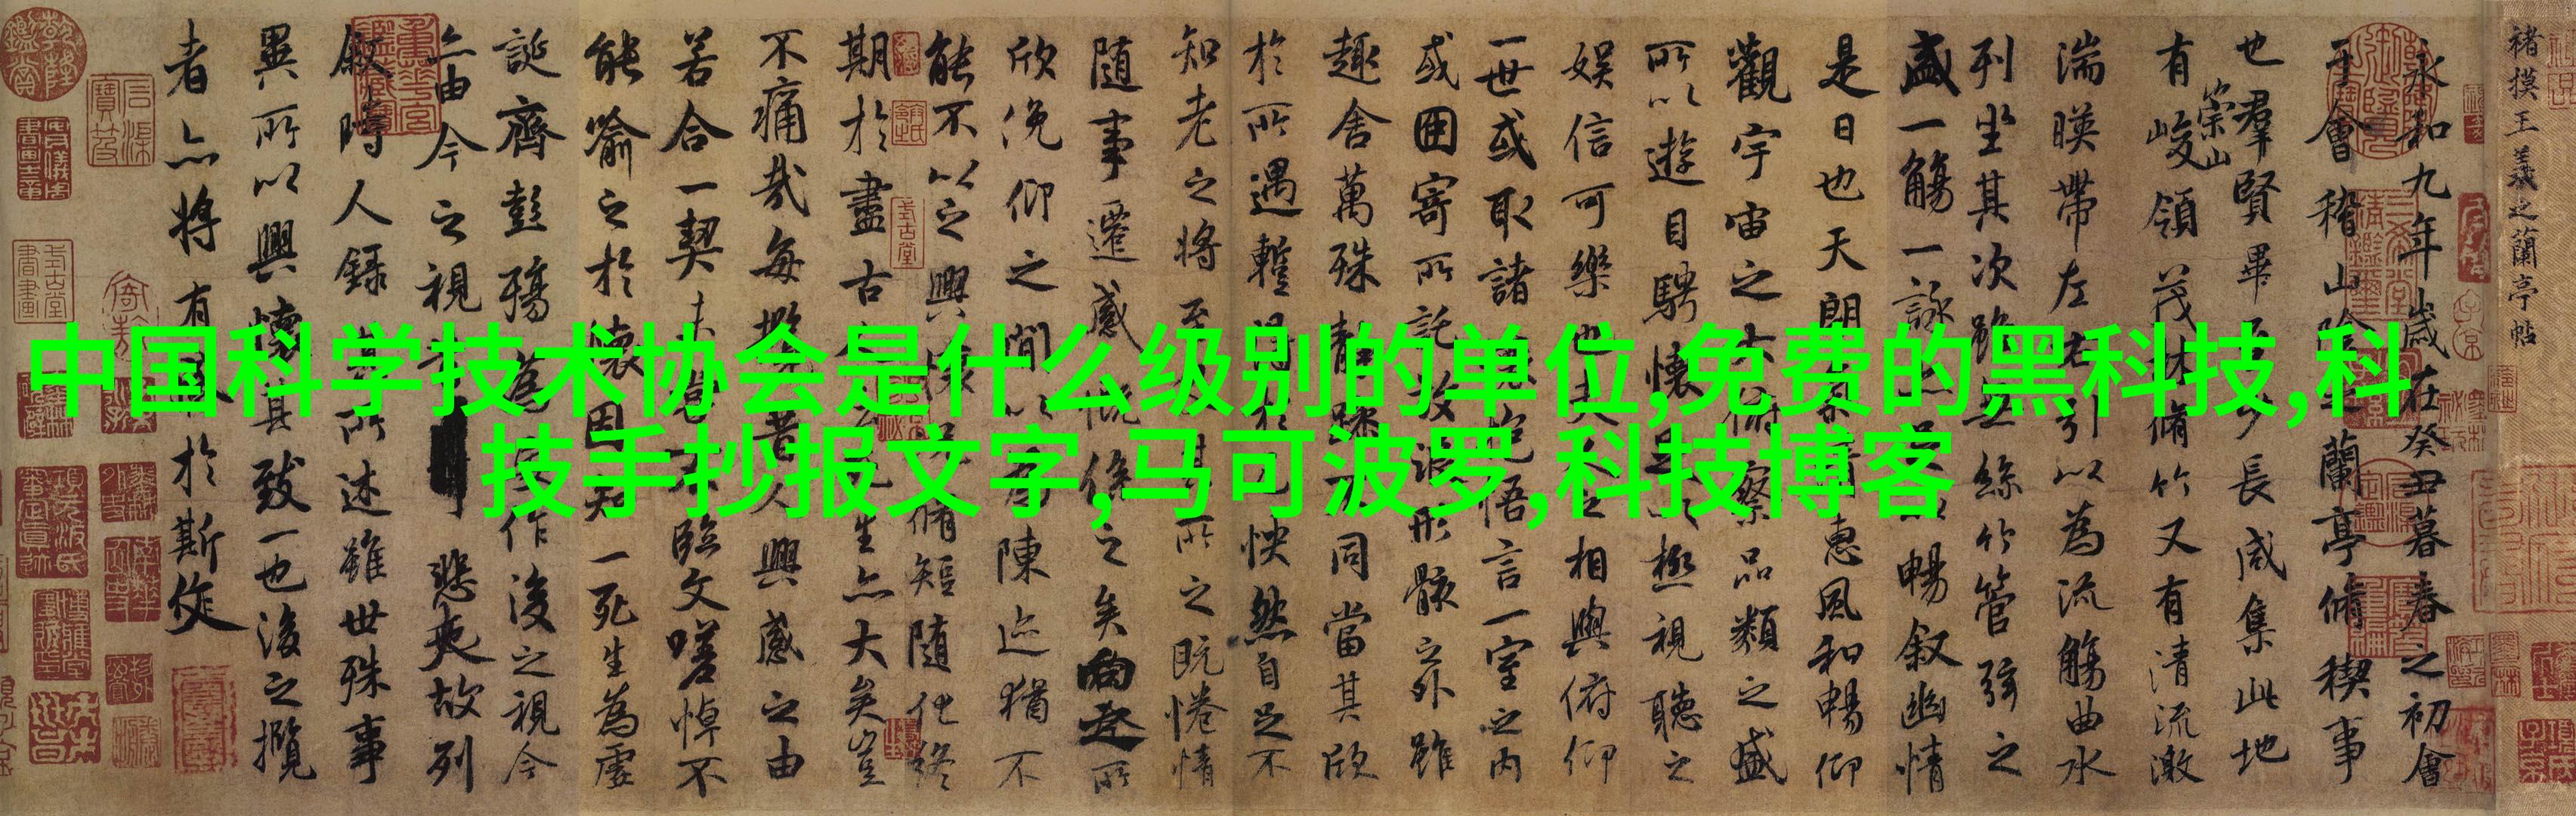 中国科学技术协会是什么级别的单位,免费的黑科技,科
技手抄报文字,马可波罗,科技博客
褚摸王羲之蘭亭帖
永和九年歲在癸丑暮春之初會
于會稽山陰之蘭亭脩稧事
也羣賢畢至少長咸集此地
有崇山峻領茂林脩竹又有清流激
湍暎帶左右引以為流觴曲水
列坐其次雖無絲竹管弦之
盛一觴一詠亦足以暢叙幽情
是日也天朗氣清惠風和暢仰
觀宇宙之大俯察品類之盛
所以遊目騁懷足以極視聽之
娛信可樂也夫人之相與俯仰
一世或取諸懷抱悟言一室之內
或因寄所託放浪形骸之外雖
趣舍萬殊靜躁不同當其欣
於所遇蹔得於己怏然自足不
知老之將至及其所之既惓情
隨事遷感慨係之矣向之所
欣俛仰之間以為陳迹猶不
能不以之興懷況脩短隨化終
期於盡古人云死生亦大矣豈
不痛哉每攬昔人興感之由
若合一契未嘗不臨文嗟悼不
能喻之於懷固知一死生為虛
誕齊彭殤為妄作後之視今
亦由今之視昔悲夫故列
叙時人錄其所述雖世殊事
異所以興懷其致一也後之攬
者亦將有感於斯文